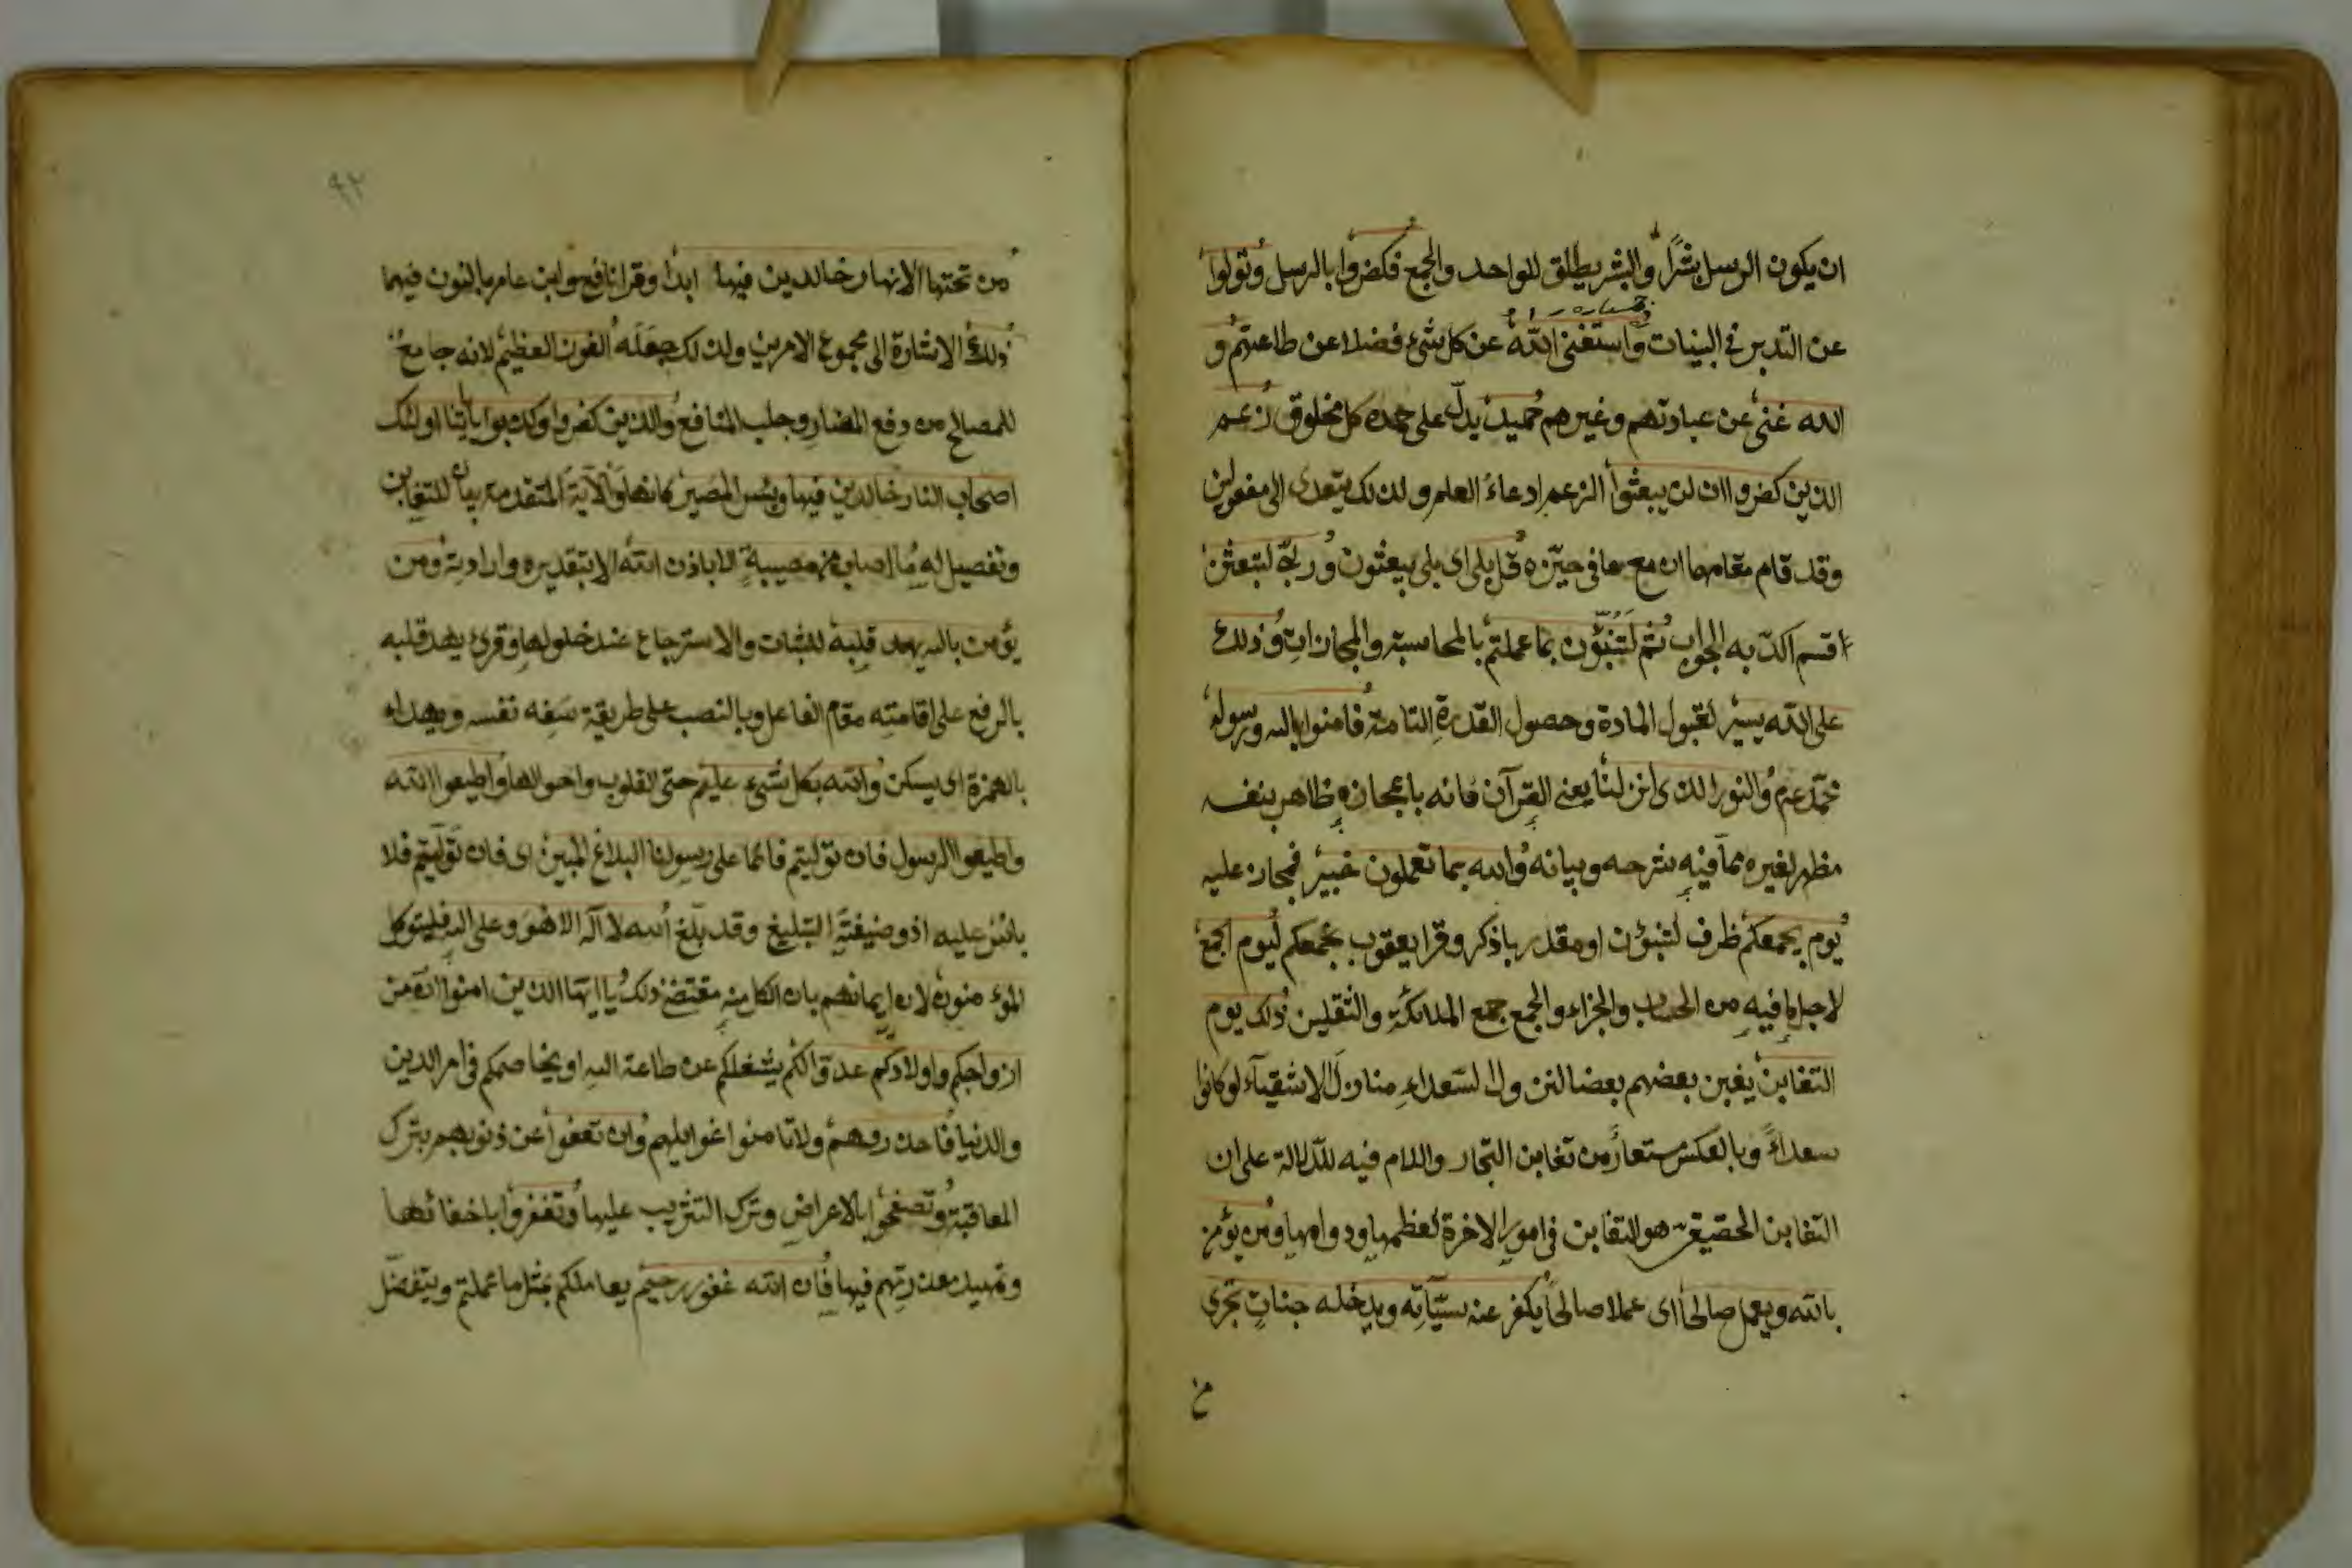 ان يكون الرسل بشرًا والبشر يطلق للواحد والجمع فكفروا بالرسل وتولوا
عن التدبر في البينات واستغنى الله عن كل شئ فضلا عن طاعتهم و
الله غنى عن عبادتهم وغيرهم حميد يدلّ على حمده كل مخلوق زعم
الذين كفروا ان لن يبعثوا الزعم ادعاء العلم ولذلك يتعدى الى مفعولين
وقد قام مقامهما ان مع ما في حيّزه قل بلى اى بلى يبعثون وربّى لتبعثن
قسم اكدّ به الجواب ثم لَتُنَبَّؤُن بما عملتم بالمحاسبة والمجازات وذلك
على الله يسير لقبول المادة وحصول القدرة التامة فامنوا بالله ورسوله
محمّد عم والنور الذى انزلنا يعنى القرآن فانه باعجازه ظاهر بنفسه
مظهر لغيره مما فيه شرحه وبيانه والله بما تعملون خبير فمجاز عليه
يوم يجمعكم ظرف لتنبؤن او مقدر باذكر وقرا يعقوب نجمعكم ليوم الجمع
لاجل ما فيه من الحساب والجزاء والجمع جمع الملائكة والثقلين ذلك يوم
التغابن يغبن بعضهم بعضا لنزول السعداء منازل الاشقيآء لو كانوا
سعداءً وبالعكس مستعار من تغابن التجار واللام فيه للدّلالة على ان
التغابن الحقيقى هو التغابن في امور الاخرة لعظمها ودوامها ومن يؤمن
بالله ويعمل صالحا اى عملا صالحاً يكفر عنه سيّآته ويدخله جنات تجرى
من
٩٢
من تحتها الانهار خالدين فيها ابدا وقرا نافع وابن عامر بالنون فيهما
ذلك الاشارة الى مجموع الامرين ولذلك جعله الفوز العظيم لانه جامع
للمصالح من دفع المضار وجلب المنافع والذين كفروا وكذبوا باياتنا اولئك
اصحاب النار خالدين فيها وبئس المصير كانها والآية المتقدمة بيان للتغابن
وتفصيل له ما اصاب من مصيبة الا باذن الله الا بتقديره وارادته ومن
يؤمن بالله يهد قلبه للثبات والاسترجاع عند حلولها وقرئ يهد قلبه
بالرفع على اقامته مقام الفاعل وبالنصب على طريقة سفه نفسه ويهداء
بالهمزة اى يسكن والله بكل شئ عليم حتى القلوب واحوالها واطيعوا الله
واطيعوا الرسول فان توليتم فانما على رسولنا البلاغ المبين اى فان توليتم فلا
باس عليه اذ وضيفته التبليغ وقد بلّغ الله لا آله الا هو وعلى الله فليتوكل
المؤمنون لان ايمانهم بان الكل منه مقتضى ذلك يا ايها الذين امنوا ان من
ازواجكم واولادكم عدوّا لكم يشغلكم عن طاعة الله او يخاصمكم في امر الدين
والدنيا فاحذروهم ولا تامنوا غوايلهم وان تعفوا عن ذنوبهم بترك
المعاقبة وتصفحوا بالاعراض وترك التثريب عليها وتغفروا باخفائها
وتمهيد معذرتهم فيها فان الله غفور رحيم يعاملكم بمثل ما عملتم ويتفضّل